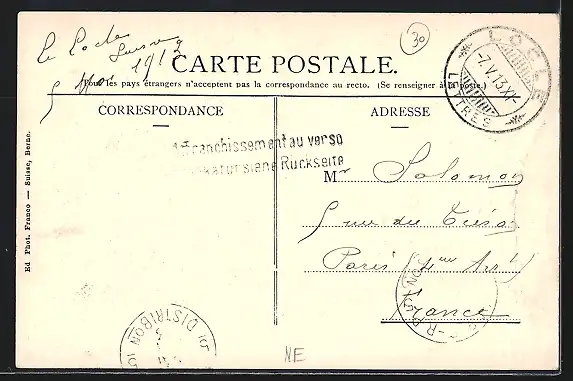 Le Locle
Suisse
5 Mai 1912
30
CARTE POSTALE.
Tous les pays étrangers n'acceptent pas la correspondance au recto. (Se renseigner à la poste.)
LOCLE
-7.V.13.XI-
LETTRES
CORRESPONDANCE
ADRESSE
Affranchissement au verso
Frankatur siehe Rückseite
Mr Salomon
5 rue du Trésor
Paris (4me Arrt)
France
Ed Phot. Franco — Suisse, Berne.
DISTRIBON
NE